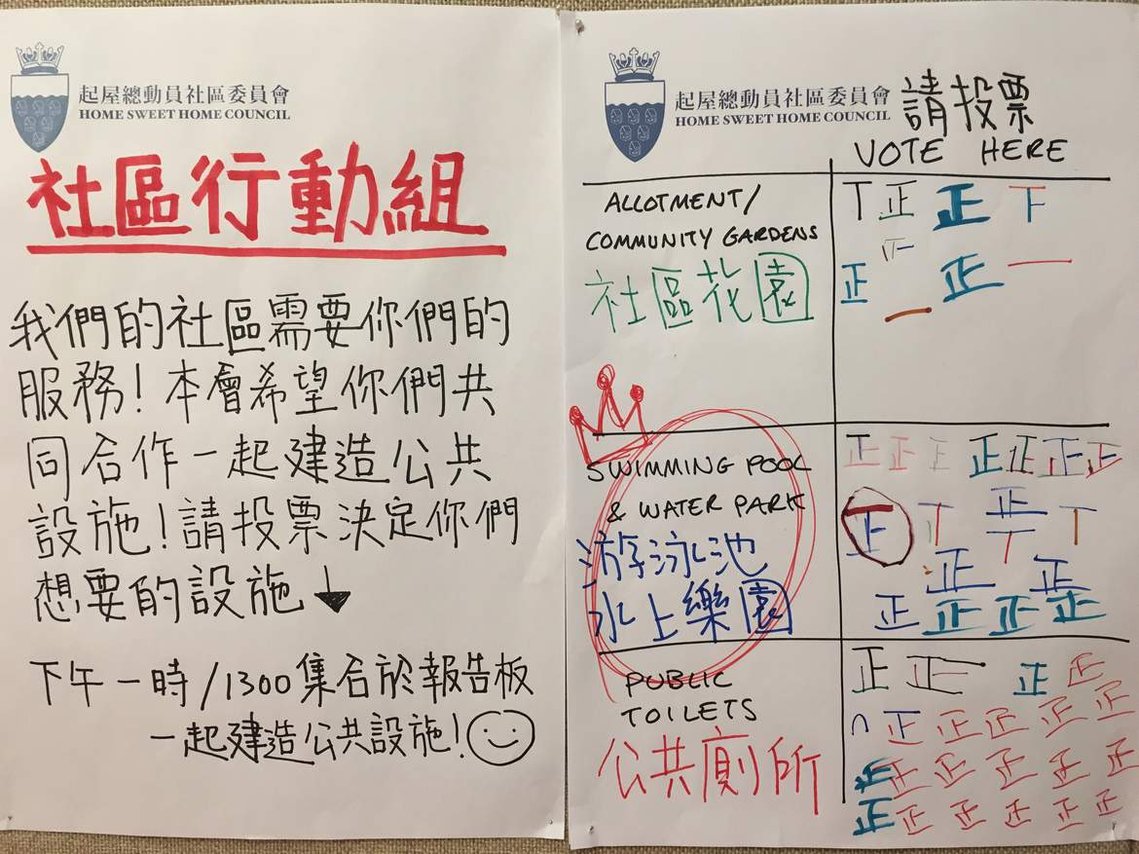 起屋總動員社區委員會
HOME SWEET HOME COUNCIL
社區行動組
我們的社區需要你們的
服務!本會希望你們共
同合作一起建造公共
設施!請投票決定你們
想要的設施↓
下午一時/1300集合於報告板
一起建造公共設施!
起屋總動員社區委員會
HOME SWEET HOME COUNCIL
請投票
VOTE HERE
ALLOTMENT/
COMMUNITY GARDENS
社區花園
丅 正 正 下
正 正 正 一
一
SWIMMING POOL
& WATER PARK
游泳池
水上樂園
正 正 正 正 正 正 正
正 丅 正 丅 丅
正 正
正 正 正 正
PUBLIC
TOILETS
公共廁所
正 正 正 正
正 正 正 正 正
正 正 正 正 正 正
正 正 正 正 正 正